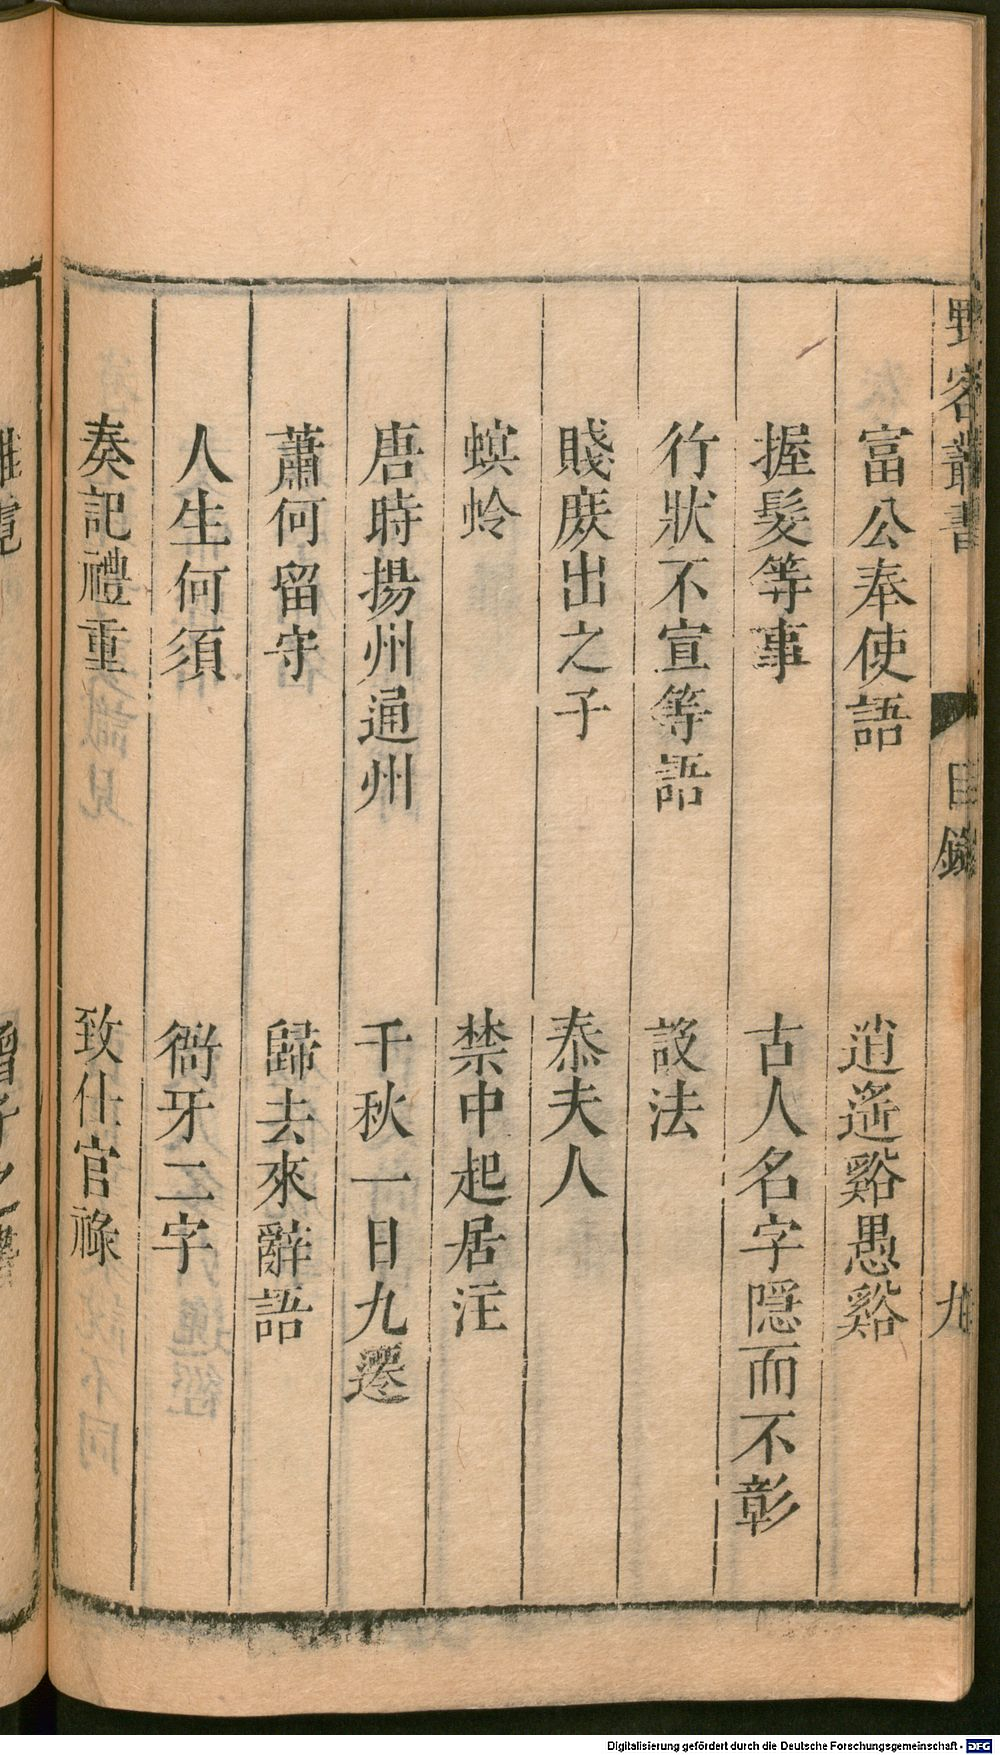 野客叢書 目錄 九
富公奉使語 逍遙谿愚谿
握髮等事 古人名字隱而不彰
行狀不宣等語 設法
賤庻出之子 㤗夫人
螟蛉 禁中起居注
唐時揚州通州 千秋一日九遷
蕭何留守 歸去來辭語
人生何須 衙牙二字
奏記禮重 致仕官祿
Digitalisierung gefördert durch die Deutsche Forschungsgemeinschaft - DFG